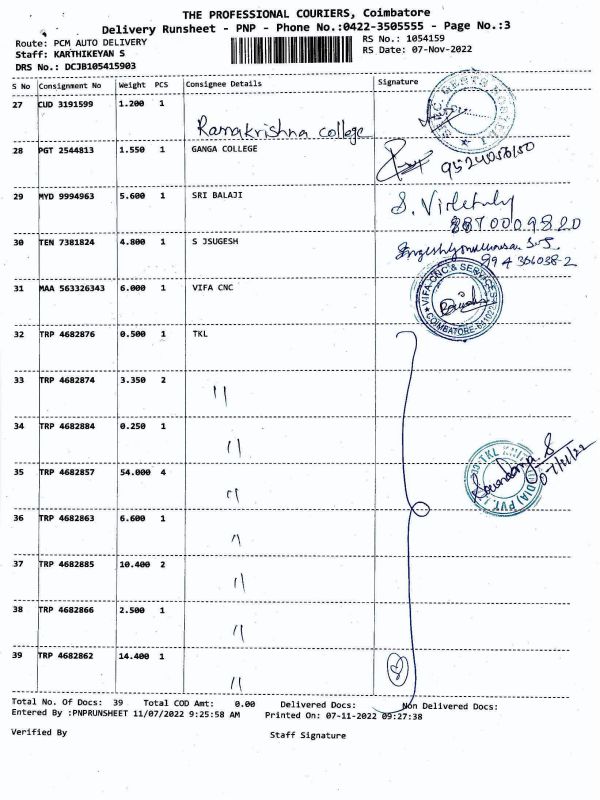 THE PROFESSIONAL COURIERS, Coimbatore
Delivery Runsheet - PNP - Phone No.:0422-3505555 - Page No.:3
Route: PCM AUTO DELIVERY RS No.: 1054159
Staff: KARTHIKEYAN S RS Date: 07-Nov-2022
DRS No.: DCJB105415903
S No Consignment No Weight PCS Consignee Details Signature
27 CUD 3191599 1.200 1
Ramakrishna college
28 PGT 2544813 1.550 1 GANGA COLLEGE
9524056150
29 MYD 9994963 5.600 1 SRI BALAJI
8870009820
30 TEN 7381824 4.800 1 S JSUGESH
31 MAA 563326343 6.000 1 VIFA CNC
VIFA CNC & SERVICES
COIMBATORE
32 TRP 4682876 0.500 1 TKL
33 TRP 4682874 3.350 2 "
34 TRP 4682884 0.250 1 "
35 TRP 4682857 54.000 4 "
07/11/22
36 TRP 4682863 6.600 1 "
37 TRP 4682885 10.400 2 "
38 TRP 4682866 2.500 1 "
39 TRP 4682862 14.400 1 "
Total No. Of Docs: 39 Total COD Amt: 0.00 Delivered Docs: Non Delivered Docs:
Entered By :PNPRUNSHEET 11/07/2022 9:25:58 AM Printed On: 07-11-2022 09:27:38
Verified By Staff Signature